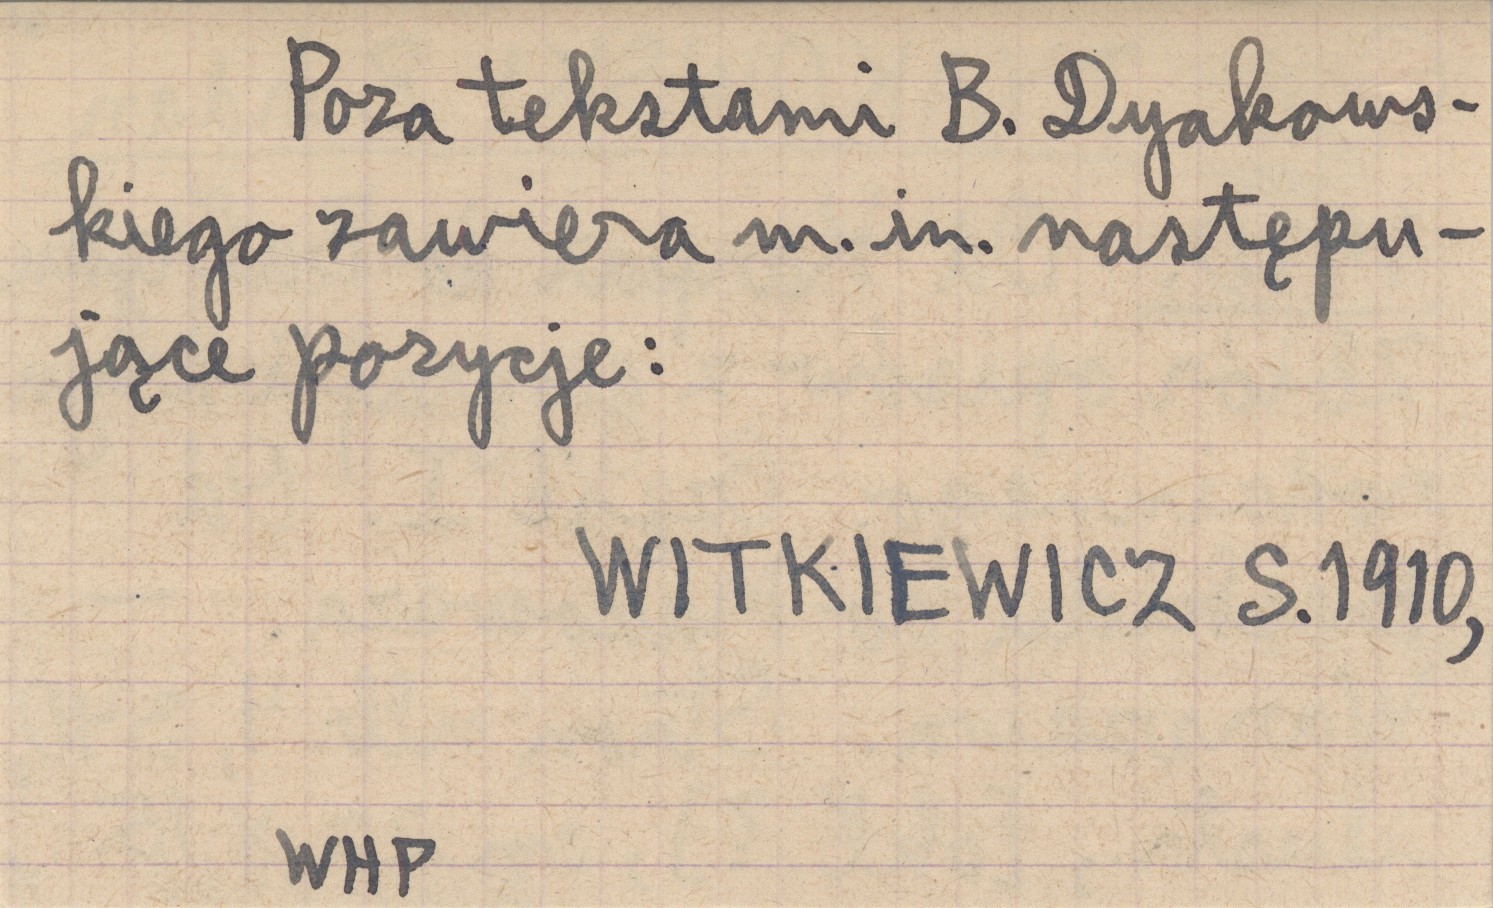 Poza tekstami B. Dyakows-
kiego zawiera m. in. następu-
jące pozycje:
WITKIEWICZ S. 1910,
WHP